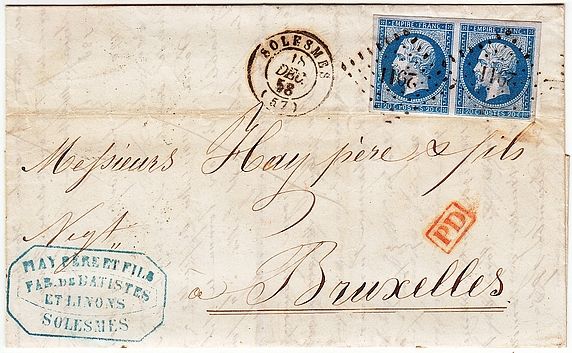 EMPIRE FRANC. EMPIRE FRANC.
2911 2911
20 C POSTES 20 C 20 C POSTES 20 C
SOLESMES
18
DEC.
58
(57)
Messieurs Hay père & fils
Negt
PD
à Bruxelles
HAY PERE ET FILS
FAB. DE BATISTES
ET LINONS
SOLESMES